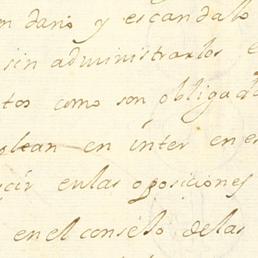 daño y escandalo
sin administrarlos
tos como son obligado
lean en inter en es
cir enlas oposiciones
en el conseJo delas